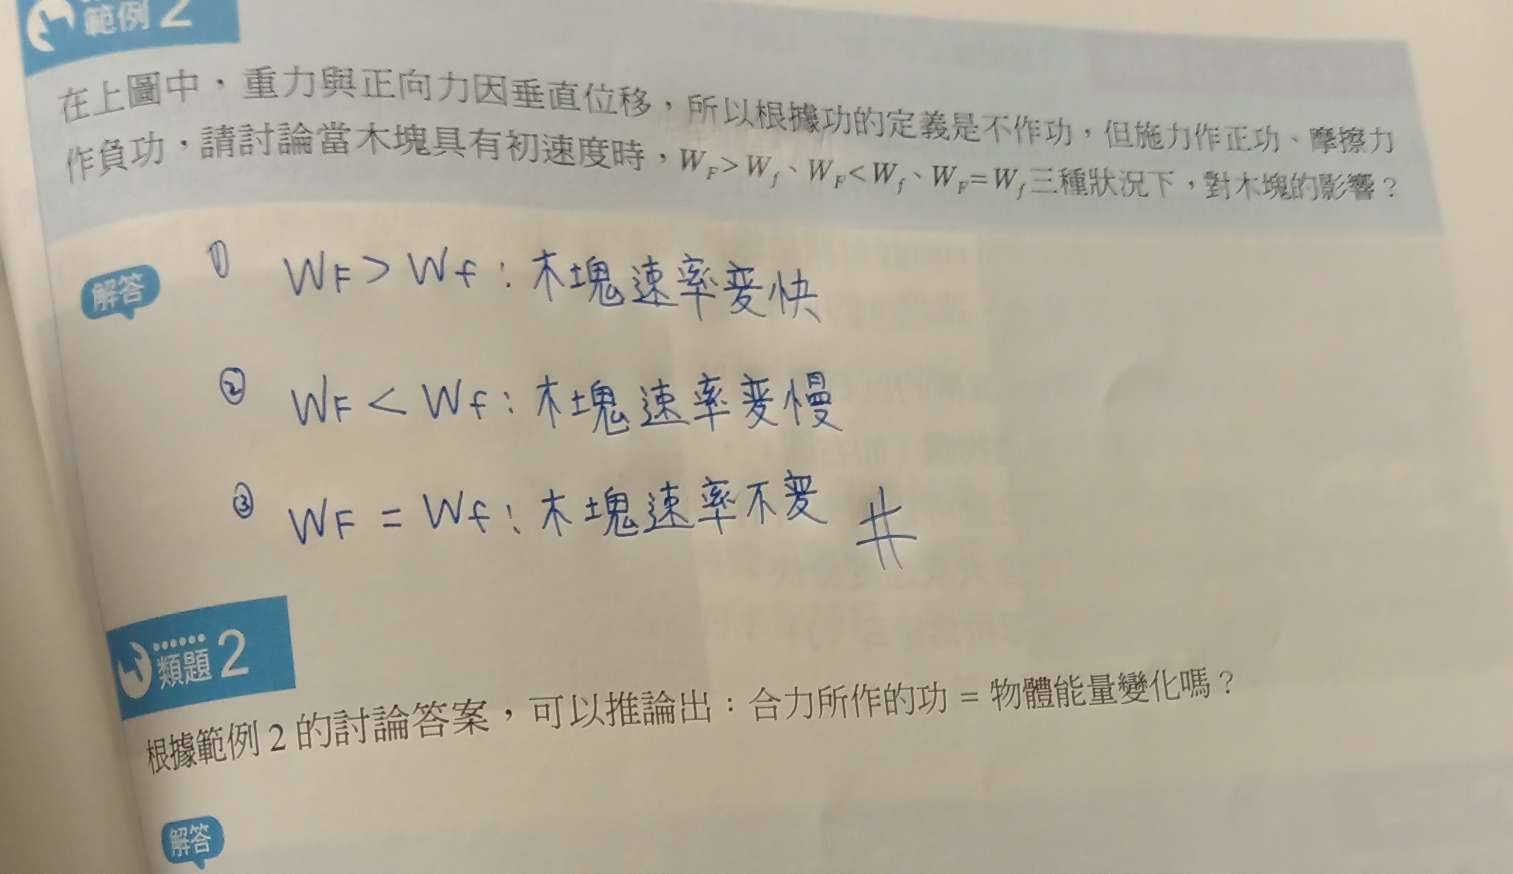 範例 2
在上圖中，重力與正向力因垂直位移，所以根據功的定義是不作功，但施力作正功、摩擦力
作負功，請討論當木塊具有初速度時，W_F>W_f、W_F<W_f、W_F=W_f三種狀況下，對木塊的影響？
解答
① WF > Wf : 木塊速率變快
② WF < Wf : 木塊速率变慢
③ WF = Wf : 木塊速率不变 #
類題 2
根據範例 2 的討論答案，可以推論出：合力所作的功 = 物體能量變化嗎？
解答